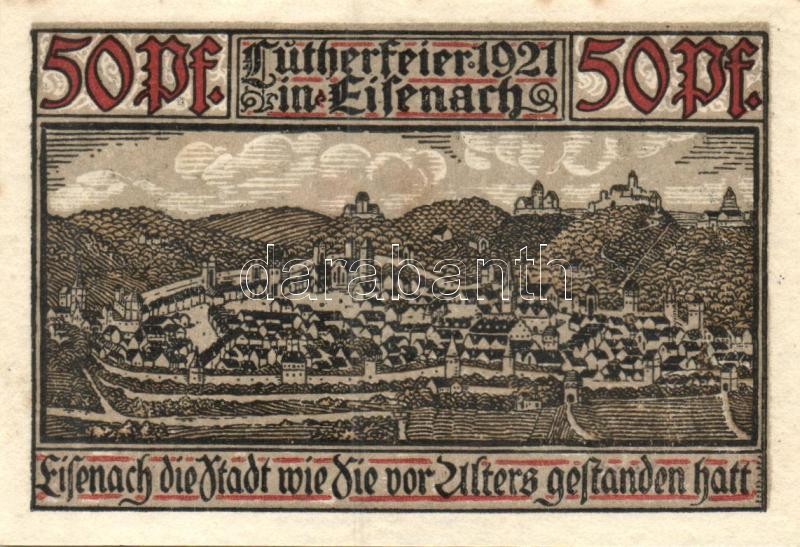 50 Pf.
Lutherfeier 1921
in Eisenach
50 Pf.
darabanth
Eisenach die Stadt wie Sie vor Alters gestanden hatt